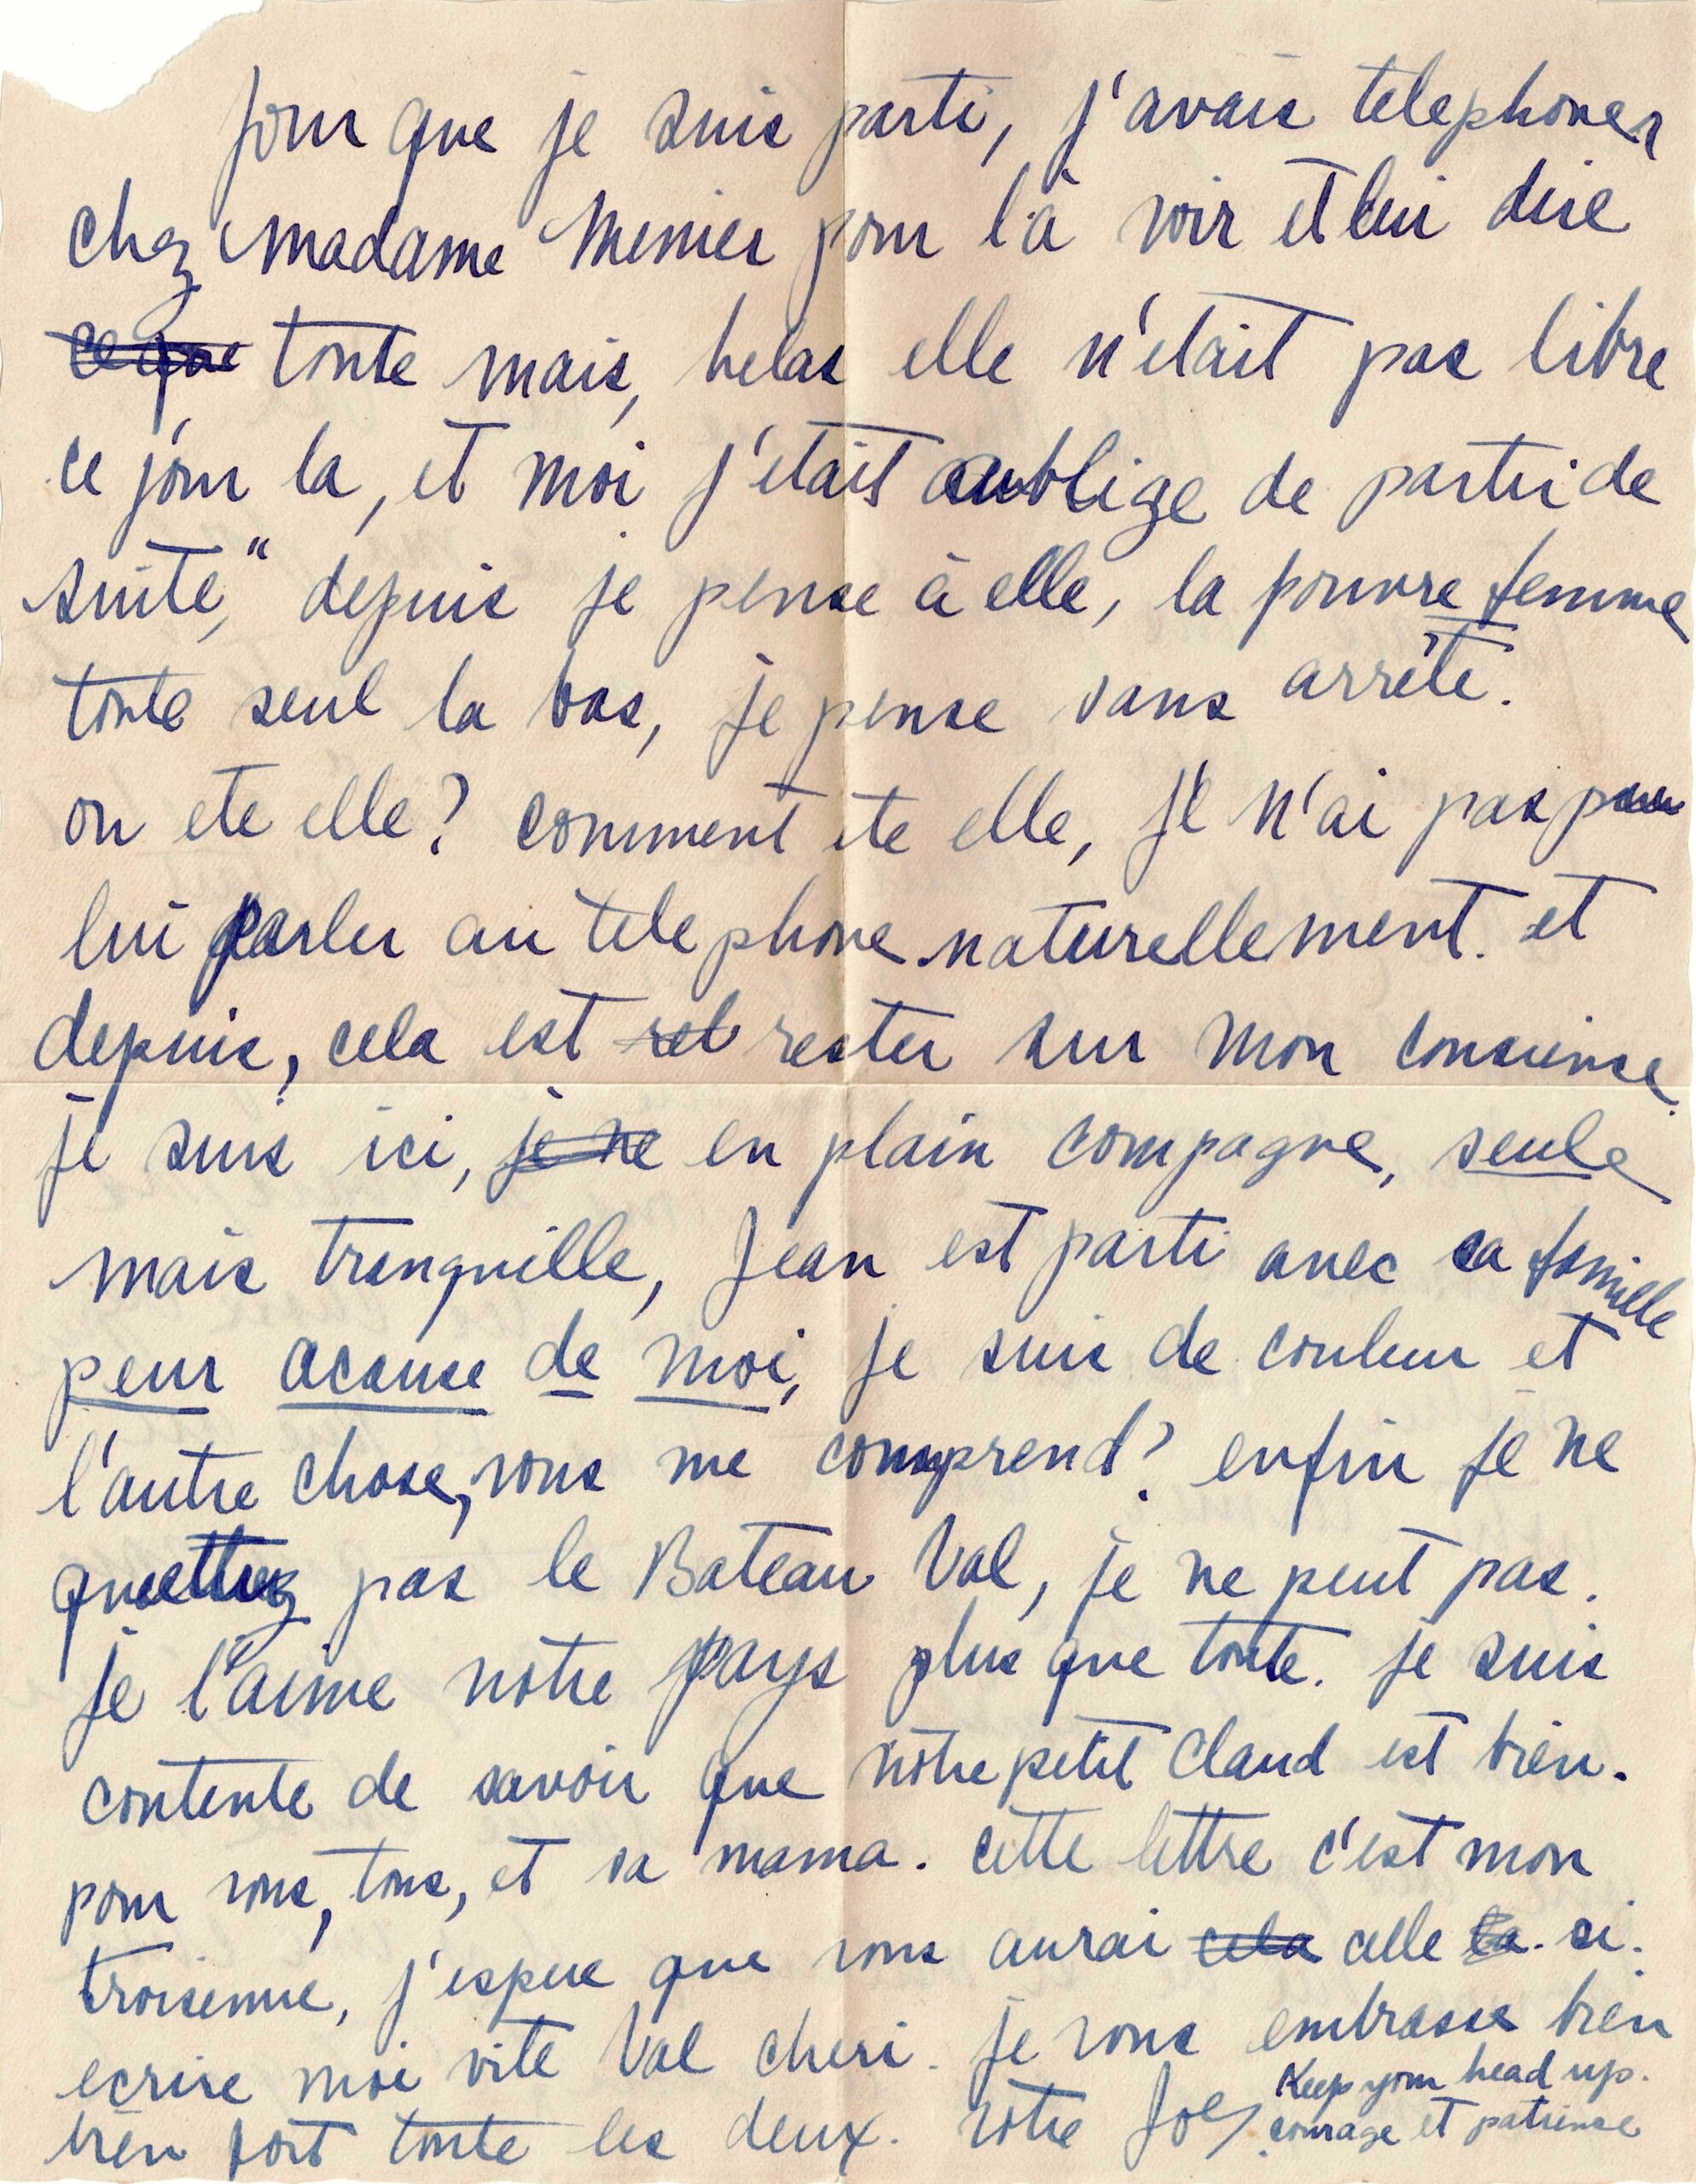 jour que je suis parti, j'avais telephoner
chez madame Menier pour l'a voir et lui dire
ce que toute mais, helas elle n'etait pas libre
ce jour la, et moi j'etait oublige de partir de
suite," depuis je pense à elle, la pouvre femme
toute seul la bas, je pense sans arrête.
ou ete elle? comment ete elle, je n'ai pas
lui parler au telephone naturellement. et
depuis, cela est rest rester sur mon consiense.
je suis ici, je ne en plain compagne, seule
mais tranquille, Jean est parti avec sa famille
peur acause de moi, je suis de couleur et
l'autre chose, vous me comprend? enfin je ne
quettez pas le Bateau Val, je ne peut pas.
je l'aime nôtre pays plus que toute. je suis
contente de savoir que nôtre petit Claud est bien.
pour vous, tous, et sa mama. cette lettre c'est mon
troisenne, j'espere que vous aurai cela celle la. si.
ecrire moi vite Val cheri. je vous embrasse bien
bien fort toute les deux. vôtre Joe
Keep your head up.
courage et patiense